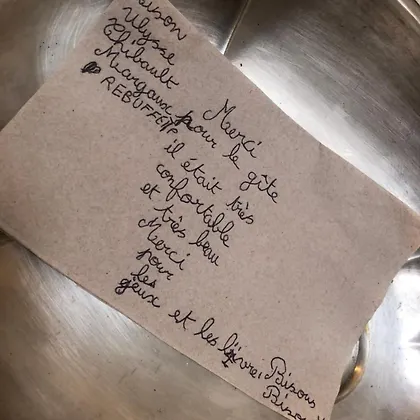 Ulysse
Thibault
Margaux
Merci
pour le gîte
il était très
confortable
et très beau
Merci
pour
les
jeux et les livre
Bisous
Bisou